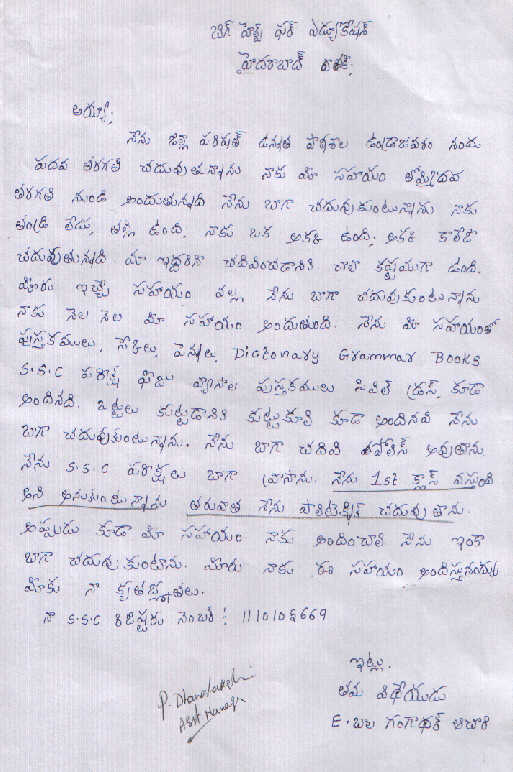 బిగ్ హెల్ప్ ఫర్ ఎడ్యుకేషన్
హైదరాబాద్
అయ్యా,
నేను జిల్లా పరిషత్ ఉన్నత పాఠశాల నందు
పదవ తరగతి చదువుతున్నాను నాకు మీ సహాయం తొమ్మిదవ
తరగతి నుండి అందుతున్నది నేను బాగా చదువుకుంటున్నాను నాకు
తండ్రి లేడు, తల్లి ఉంది. నాకు ఒక అక్క ఉంది. అక్క కాలేజి
చదువుతున్నది మా ఇద్దరిని చదివించడానికి చాలా కష్టముగా ఉంది.
మీరు ఇచ్చే సహాయం వల్ల నేను బాగా చదువుకుంటున్నాను
నాకు నెల నెల మీ సహాయం అందుతుంది. నేను మీ సహాయంతో
పుస్తకములు, నోట్లు, పెన్నులు, Dictonary Grammar Books
S.S.C పరీక్ష ఫీజు వ్యాసాల పుస్తకములు సివిల్ డ్రస్ కూడా
అందినది. బట్టలు కుట్టుడానికి కుట్టుకూలి కూడా అందినవి నేను
బాగా చదువుకుంటున్నాను. నేను బాగా చదివి పోలీస్ అవుతాను
నేను S.S.C పరీక్షలు బాగా వ్రాసాను. నేను 1st క్లాస్ వస్తుంది
అని అనుకుంటున్నాను తరువాత నేను పాలిటెక్నిక్ చదువుతాను.
అప్పుడు కూడా మీ సహాయం నాకు అందించాలి నేను ఇంకా
బాగా చదువుకుంటాను. మీరు నాకు ఈ సహాయం అందిస్తునందుకు
మీకు నా కృతజ్ఞతలు.
నా S.S.C రిజిస్టరు నెంబర్ : 1110106669
ఇట్లు.
తమ విధేయుడు
E. బాల గంగాధర్ ఆచారి